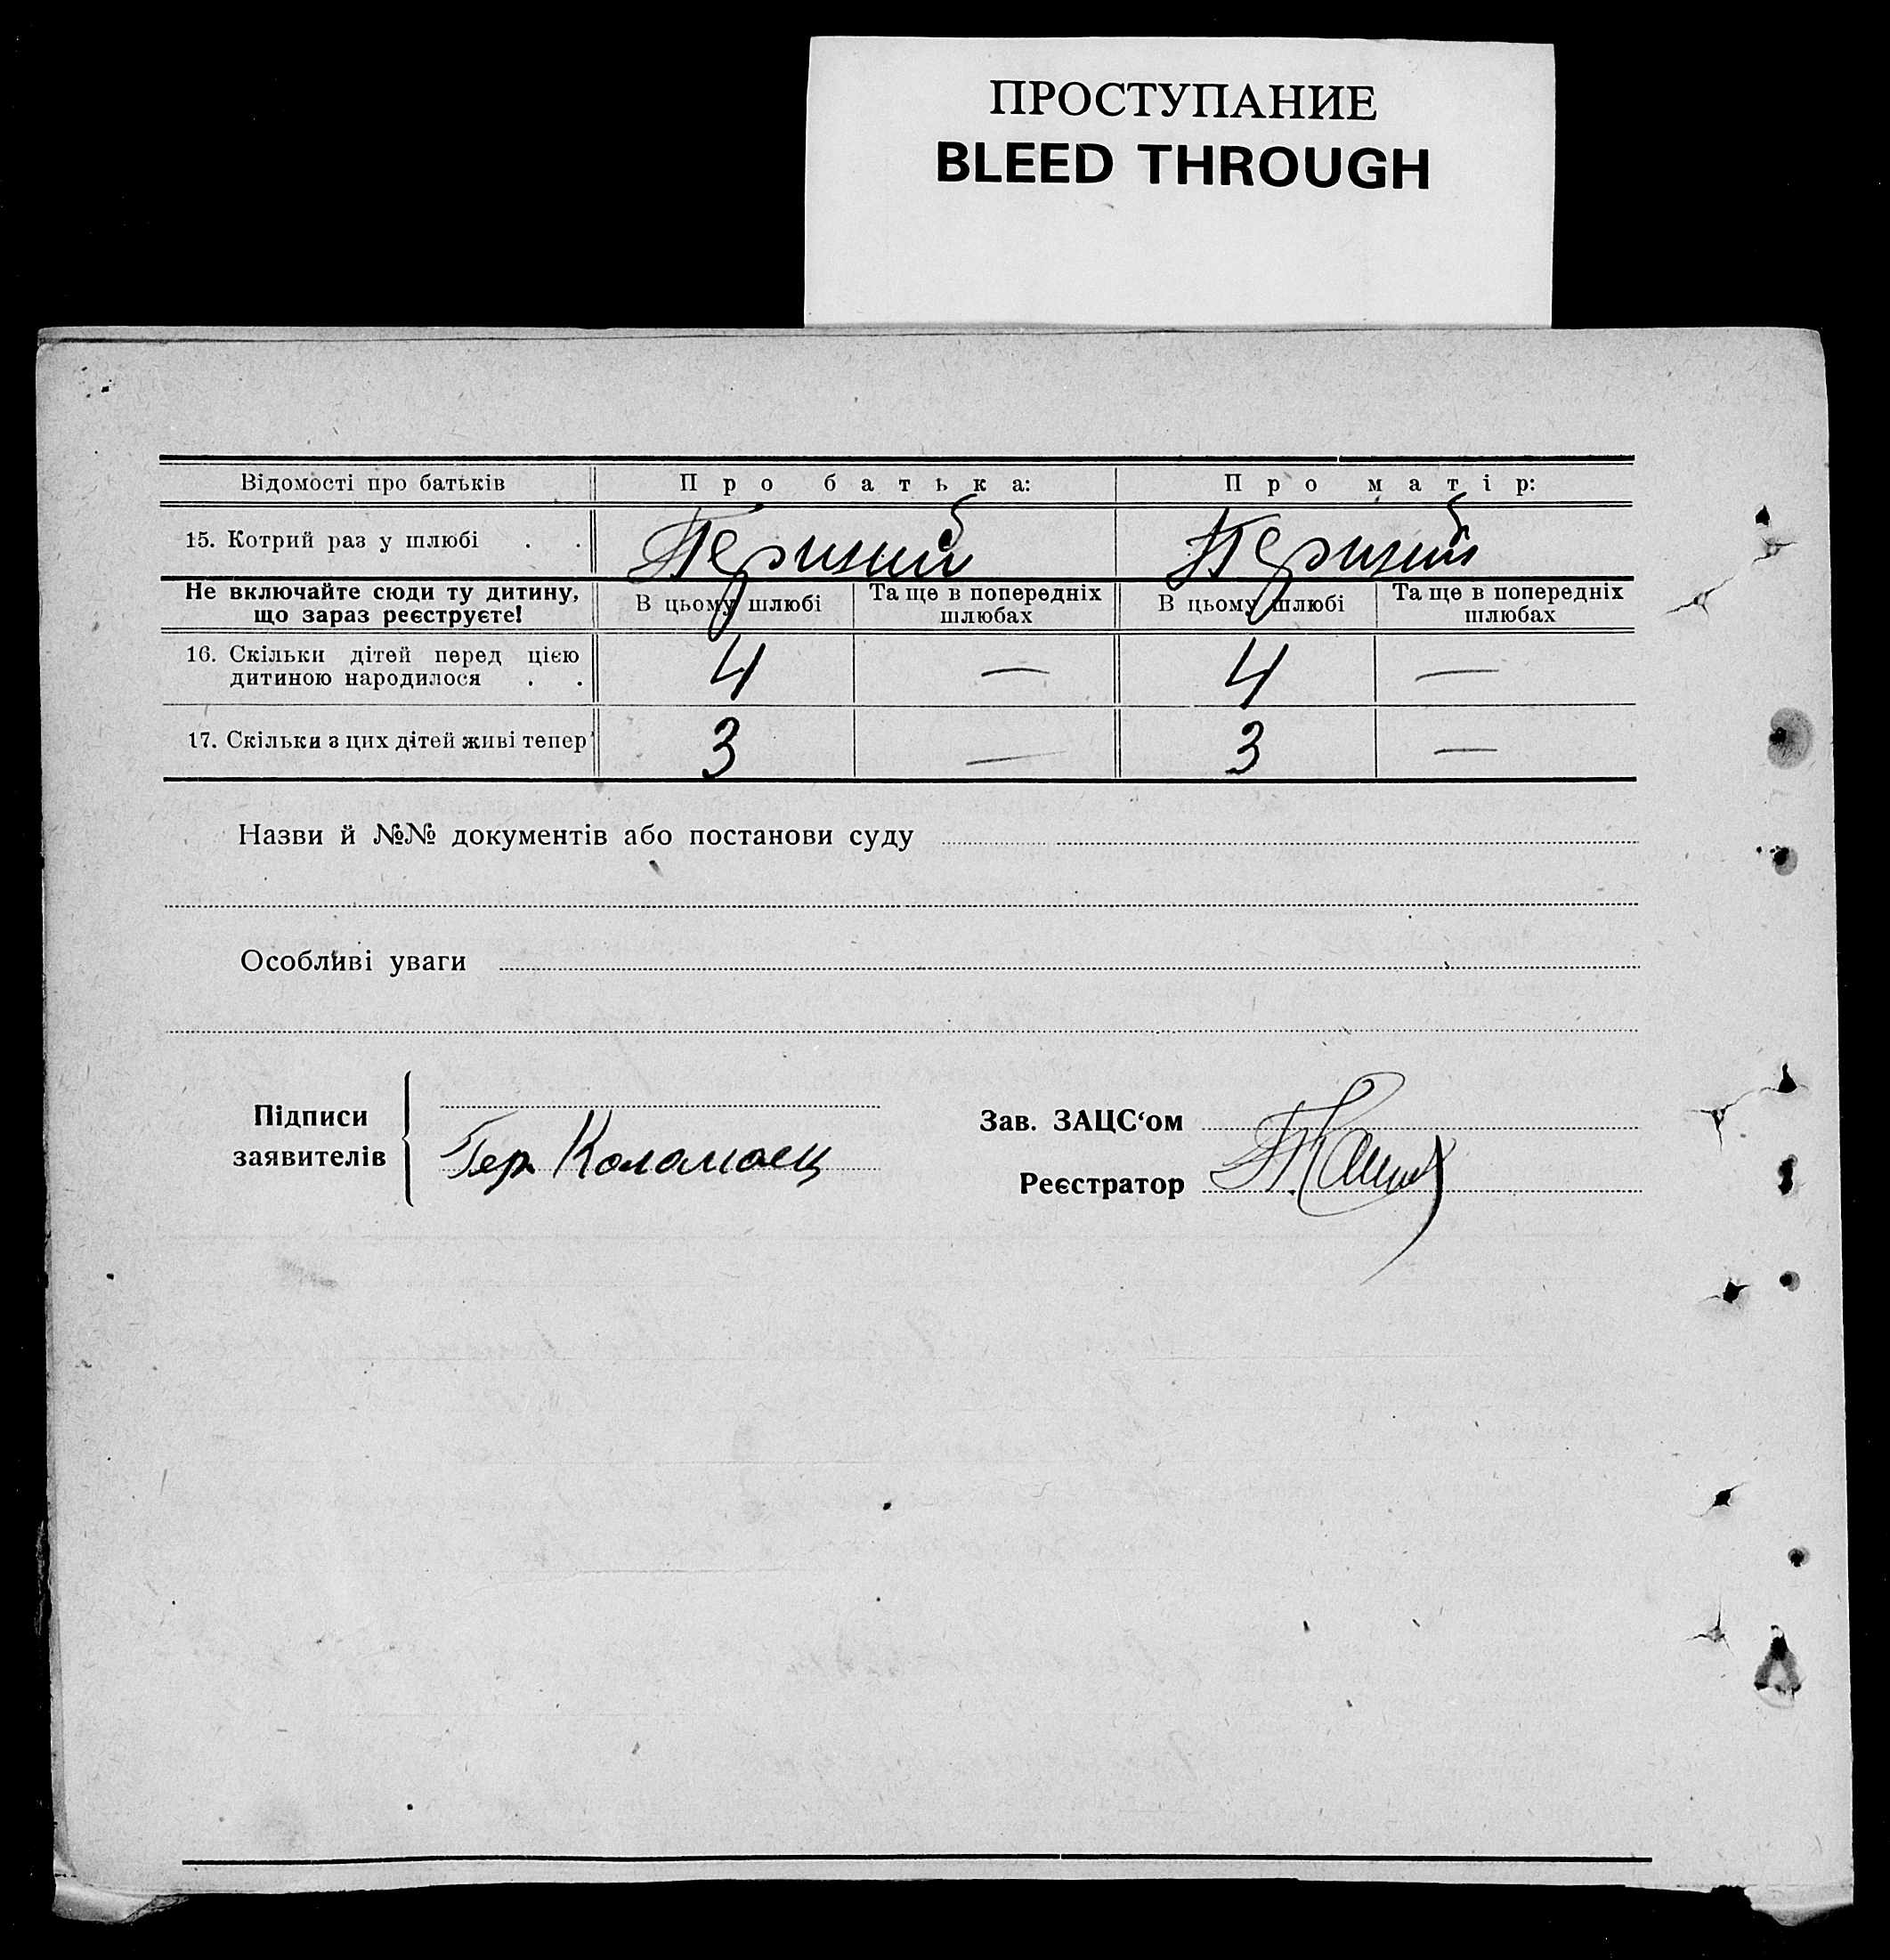 ПРОСТУПАНИЕ
BLEED THROUGH
Відомості про батьків Про батька: Про матір:
15. Котрий раз у шлюбі . . Перший Перший
Не включайте сюди ту дитину, що зараз реєструєте! В цьому шлюбі Та ще в попередніх шлюбах В цьому шлюбі Та ще в попередніх шлюбах
16. Скільки дітей перед цією дитиною народилося . . 4 — 4 —
17. Скільки з цих дітей живі тепер 3 — 3 —
Назви й №№ документів або постанови суду
Особливі уваги
Підписи
заявителів
Гер. Коломоец
Зав. ЗАЦС‘ом
Реєстратор